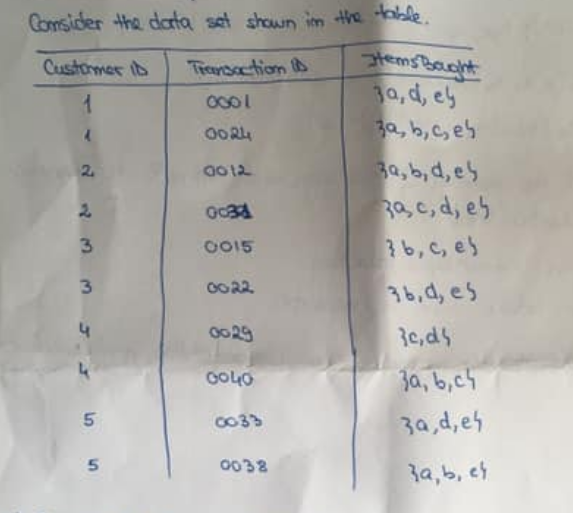 Consider the data set shown in the table.
Customer ID Transaction ID Items Bought
1 0001 {a, d, e}
1 0024 {a, b, c, e}
2 0012 {a, b, d, e}
2 0031 {a, c, d, e}
3 0015 {b, c, e}
3 0022 {b, d, e}
4 0029 {c, d}
4 0040 {a, b, c}
5 0033 {a, d, e}
5 0038 {a, b, e}